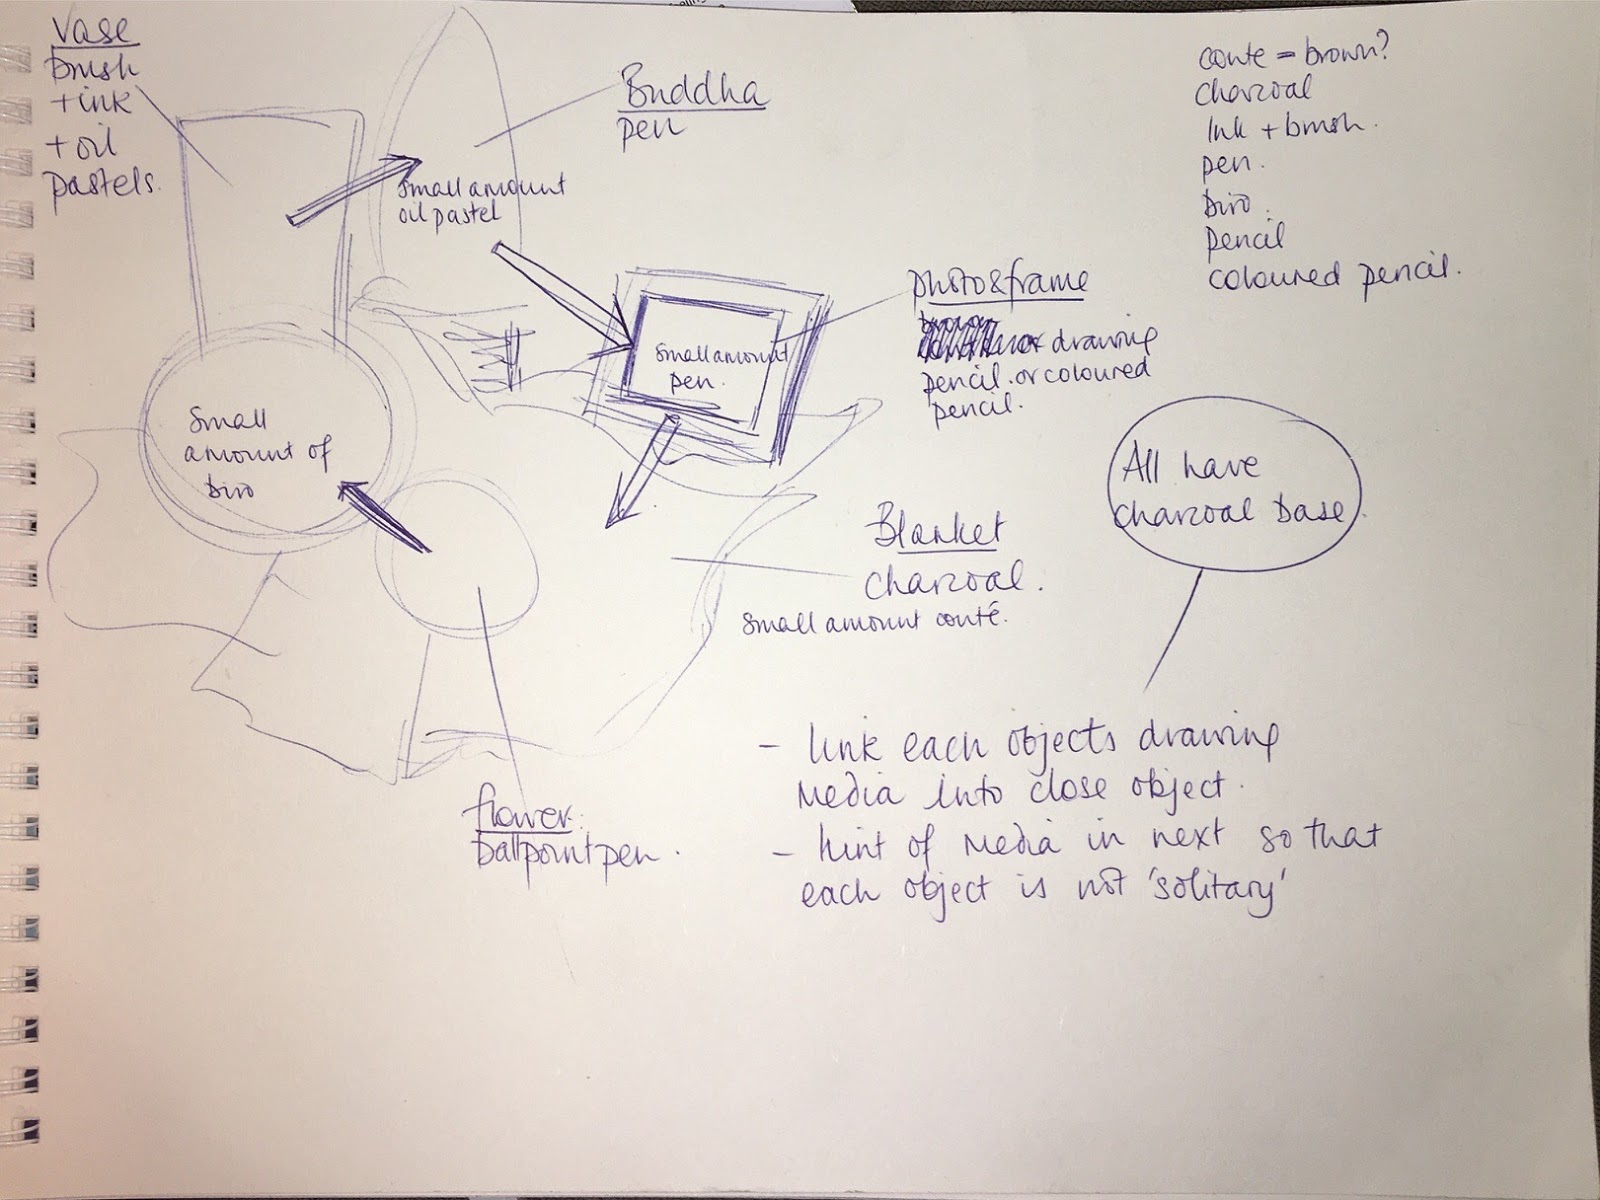 Vase
brush
+ ink
+ oil
pastels.
Buddha
pen
small amount
oil pastel
conte = brown?
charcoal
Ink + brush.
pen.
biro.
pencil
coloured pencil.
photo & frame
drawing
pencil. or coloured
pencil.
small amount
pen.
Small
amount of
biro
All have
charcoal base.
Blanket
charcoal.
small amount conté.
flower:
ballpoint pen.
- link each objects drawing
media into close object.
- hint of media in next so that
each object is not 'solitary'